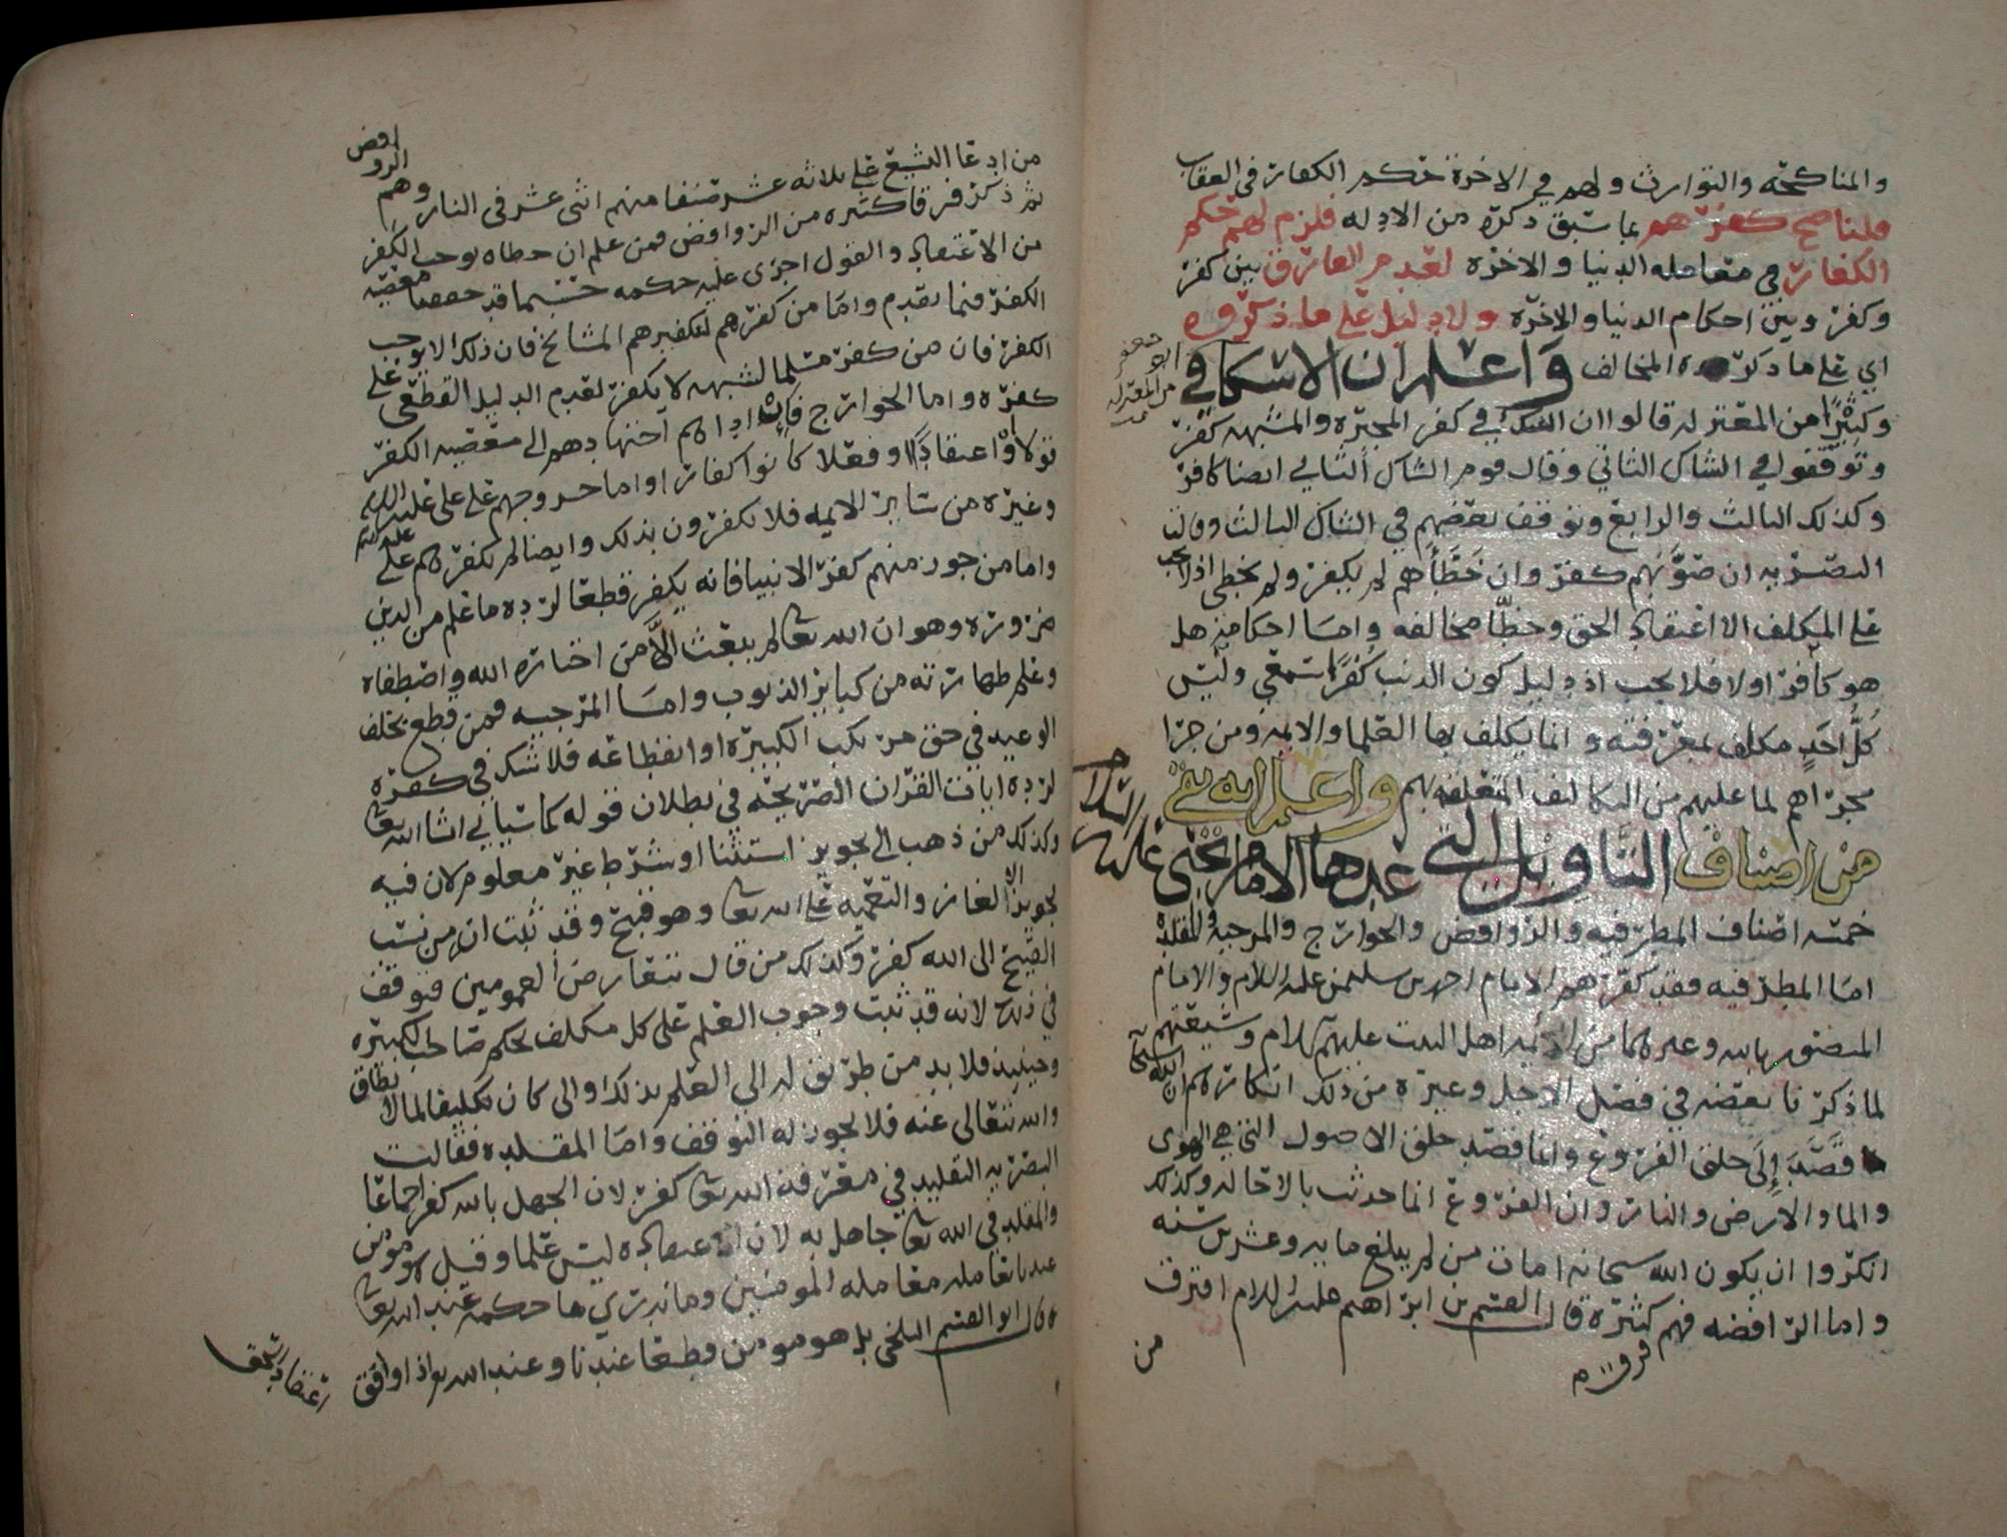 والمناكحة والتوارث ولهم في الاخرة حكم الكفار في العقاب
قلنا صح كفرهم بما سبق ذكره من الادله فلزم لهم حكم
الكفار في معامله الدنيا والاخره لعدم الفارق بين كفر
وكفر وبين احكام الدنيا والاخرة ولا دليل على ما ذكروه
اي على ما ذكره المخالف واعلم ان الاسكافي
ابو جعفر من المعتزله
وكثيرًا من المعتزله قالوا ان الشاك في كفر المجبره والمشبهه كفر
وتوقفوا في الشاك الثاني وقال قوم الشاك الثاني ايضا كافر
وكذلك الثالث والرابع وتوقف بعضهم في الشاك الثالث وقالت
البصرية ان صوَّبهم كفر وان خَطَّأهم لم يكفر ولم يخطي اذ لا يجب
على المكلف الا اعتقاد الحق وخطأ مخالفه واما احكامه هل
هو كافر اولا فلا يجب اذ دليل كون الذنب كفرًا سمعي وليس
كُلُّ احَدٍ مكلف بمعرفته وانما يكلف بها العلما والايمه ومن جرا
مجراهم لما عليهم من التكاليف المتعلقه بهم واعلم انه بقي
من اصناف التأويل التي عدها الامام يحيى عليه السلام
خمسه اصناف المطرفيه والروافض والخوارج والمرجيه والمقلده
اما المطرفيه فقد كفرهم الامام احمد بن سليمن عليه السلام والامام
المنصور بالله وغيرهما من ائمه اهل البيت عليهم السلام وشيعتهم
لما ذكرنا بعضه في فصل الاجل وغيره من ذلك انكارهم ان الله سبحانه
قَصَدَ إلى خلق الفروع وانما قصد خلق الاصول التي هي الهوى
والما والارض والنار وان الفروع انما حدثت بالاحاله وكذلك
انكروا ان يكون الله سبحانه امات من لم يبلغ مايه وعشرين سنه
واما الرافضه فهم كثيره قال القسم بن ابراهيم عليه السلام افترق
فرق
من
من ادعا التشيع على ثلاثه عشر صنفا منهم اثنى عشر في النار وهم الروافض
ثم ذكر فرقا كثيره من الروافض فمن علم ان خطاه يوجب الكفر
من الاعتقاد والقول اجرى عليه حكمه حسبما قد حققنا معصيه
الكفر فيما تقدم واما من كفرهم لتكفيرهم المشائخ فان ذلك لا يوجب
الكفر فان من كفر مسلما لشبهه لا يكفر لعدم الدليل القطعي على
كفره واما الخوارج فان اداهم اجتهادهم الى معصيه الكفر
قولا او اعتقادًا وفعلا كانوا كفارا واما خروجهم على علي عليه السلام
وغيره من ساير الايمه فلا يكفرون بذلك وايضا لم يكفرهم علي عليه السلم
واما من جوز منهم كفر الانبيا فانه يكفر قطعا لرده ما علم من الدين
ضروره وهو ان الله تعالى لم يبعث الَّا من اختاره الله واصطفاه
وعلم طهارته من كباير الذنوب واما المرجيه فمن قطع بخلف
الوعيد في حق مرتكب الكبيره او انقطاعه فلا شك في كفره
لرده ايات القران الصريحه في بطلان قوله كما سياتي انشا الله تعالى
وكذلك من ذهب الى تجويز استثنا او شرط غير معلوم لان فيه
تجويز الالغاز والتعميه على الله تعالى وهو قبيح وقد ثبت ان من نسب
القبيح الى الله كفر وكذلك من قال بتعارض العمومين فتوقف
في ذلك لانه قد ثبت وجوب العلم على كل مكلف بحكم صاحب الكبيره
وحينيذ فلا بد من طريق له الى العلم بذلك والى كان تكليفا لما لا يطاق
والله تعالى عنه فلا يجوز له التوقف واما المقلده فقالت
البصريه التقليد في معرفه الله تعالى كفر لان الجهل بالله كفر اجماعا
والمقلد في الله تعالى جاهل به لان اعتقاده ليس علما وقيل هو مومن
عندنا نعامله معامله المومنين وما ندري ما حكمه عند الله تعالى
وقال ابو القسم البلخي بل هو مومن قطعا عندنا وعند الله تعالى اذا وافق